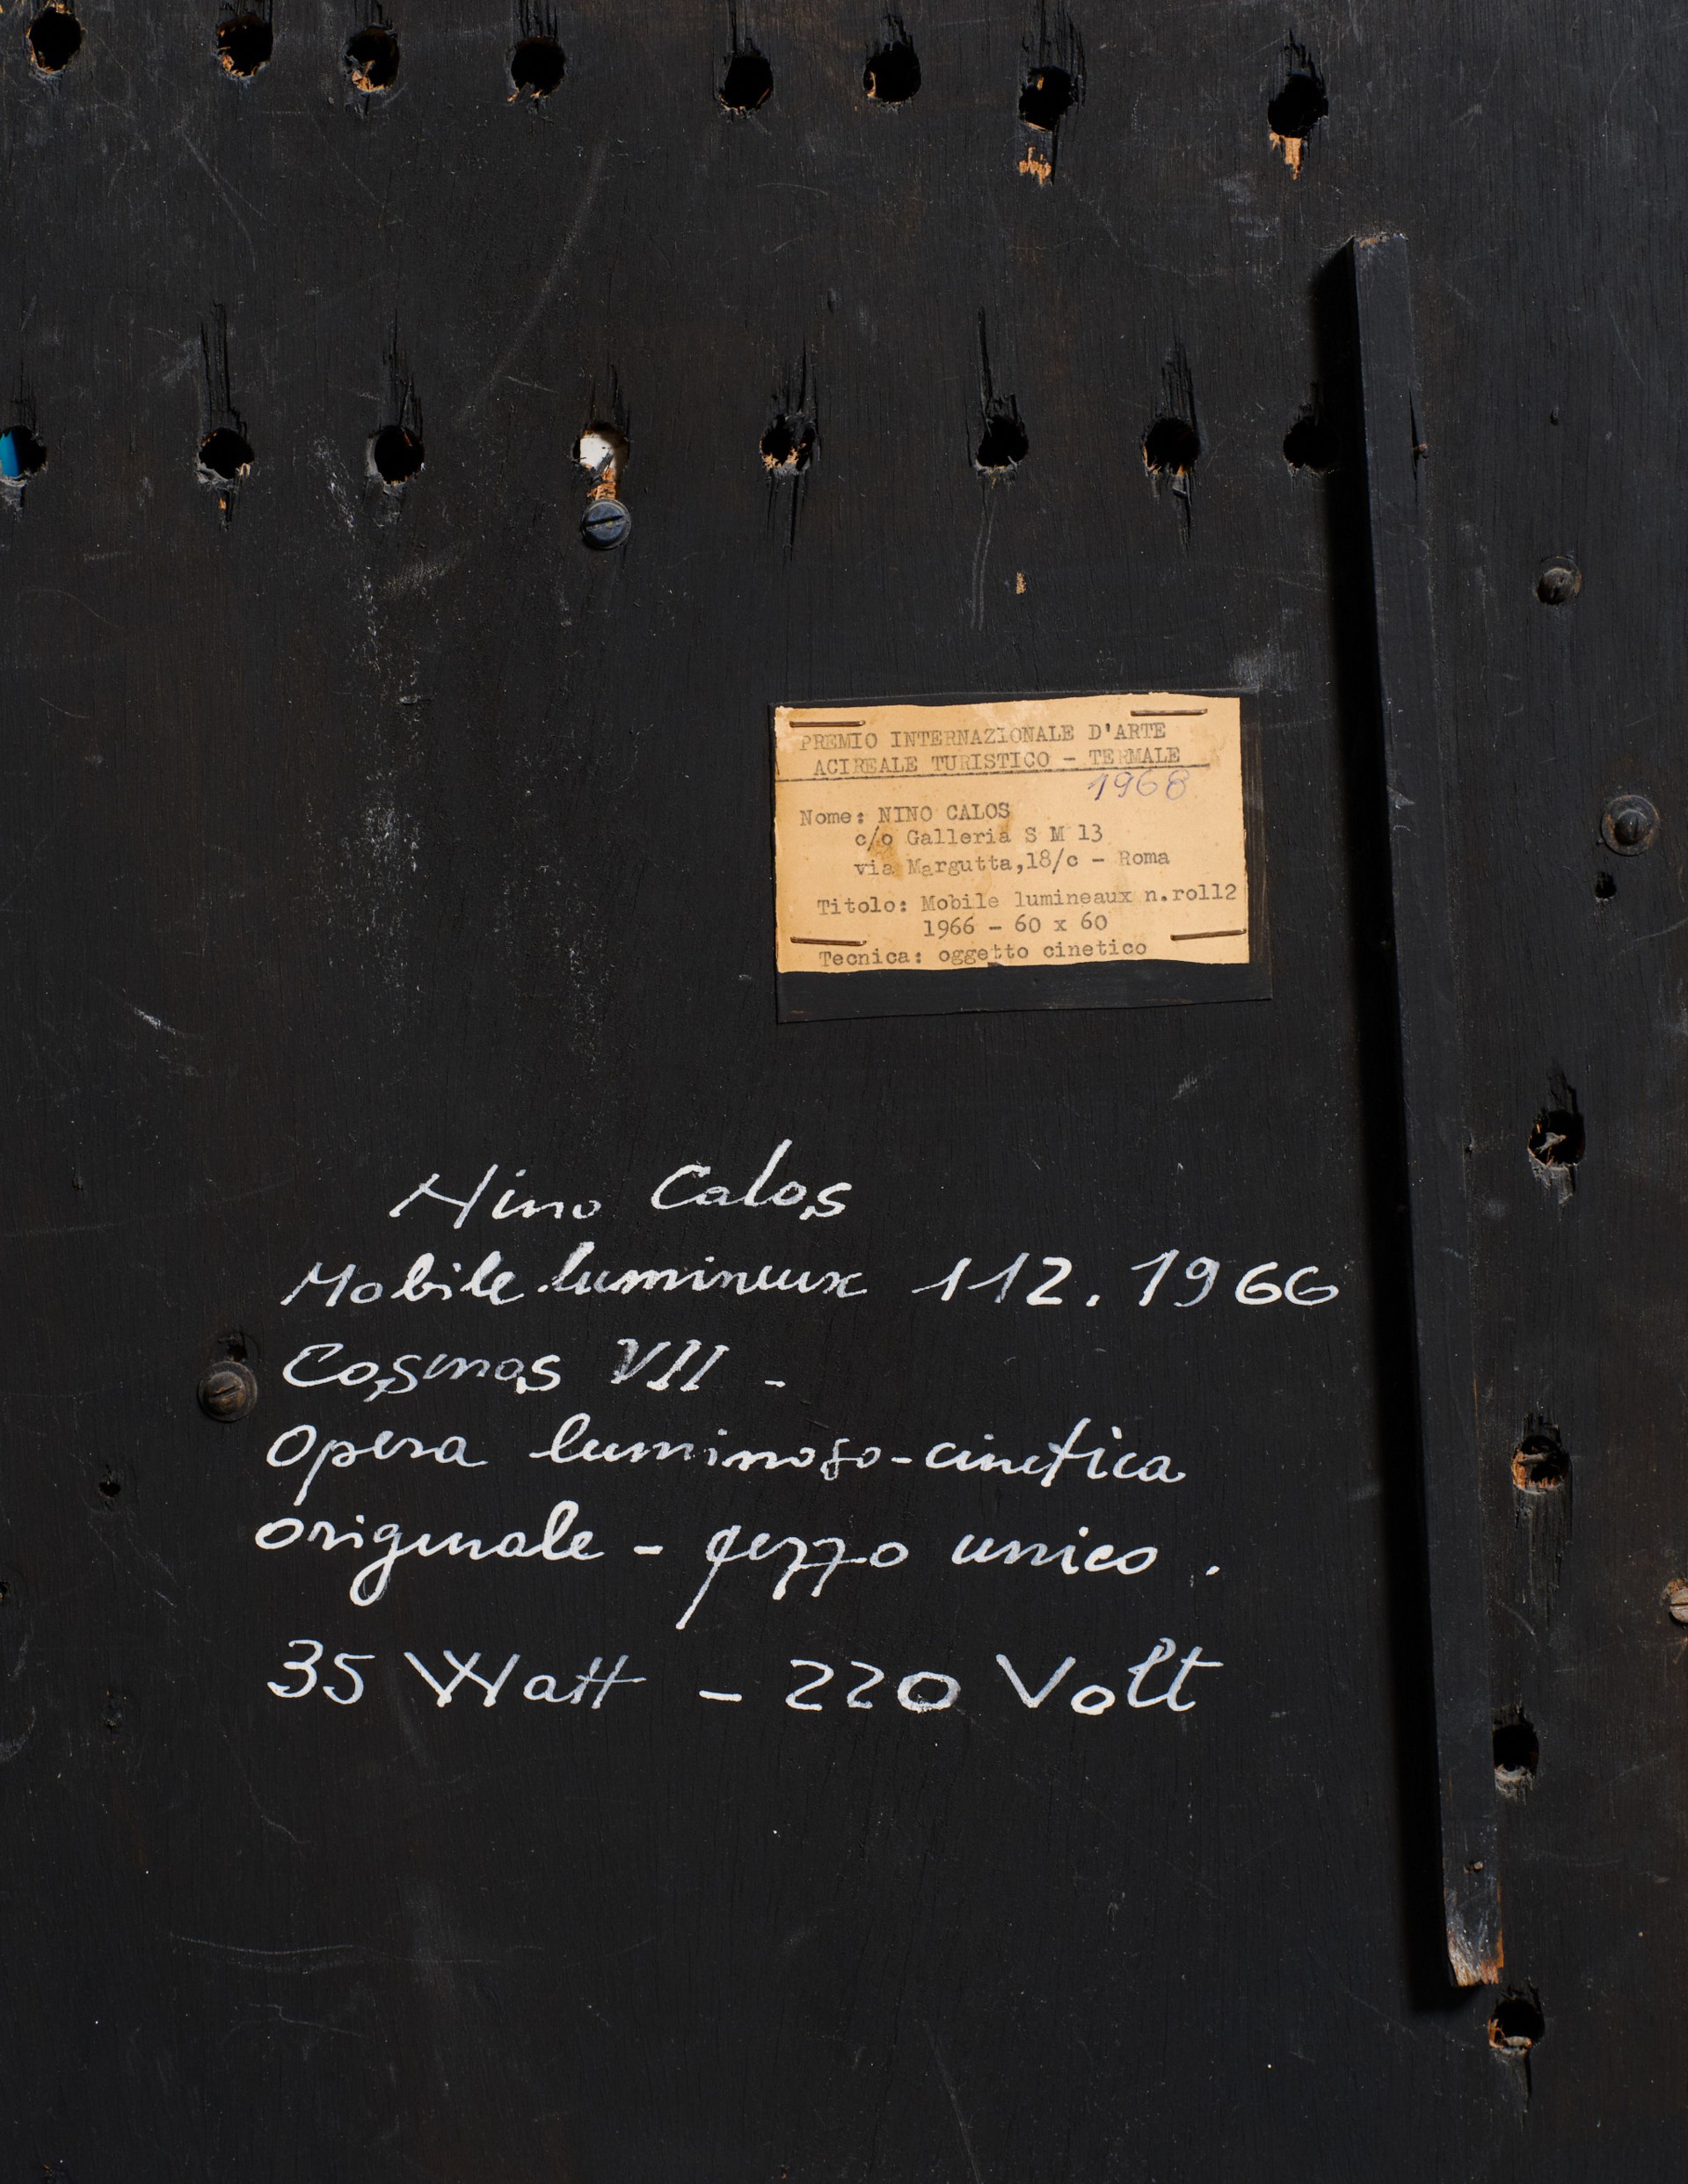 PREMIO INTERNAZIONALE D'ARTE
ACIREALE TURISTICO - TERMALE
1968
Nome: NINO CALOS
c/o Galleria S M 13
via Margutta,18/c - Roma
Titolo: Mobile lumineaux n.roll2
1966 - 60 x 60
Tecnica: oggetto cinetico
Nino Calos
Mobile lumineux 112. 1966
Cosmos VII -
Opera luminoso-cinetica
originale - pezzo unico.
35 Watt - 220 Volt